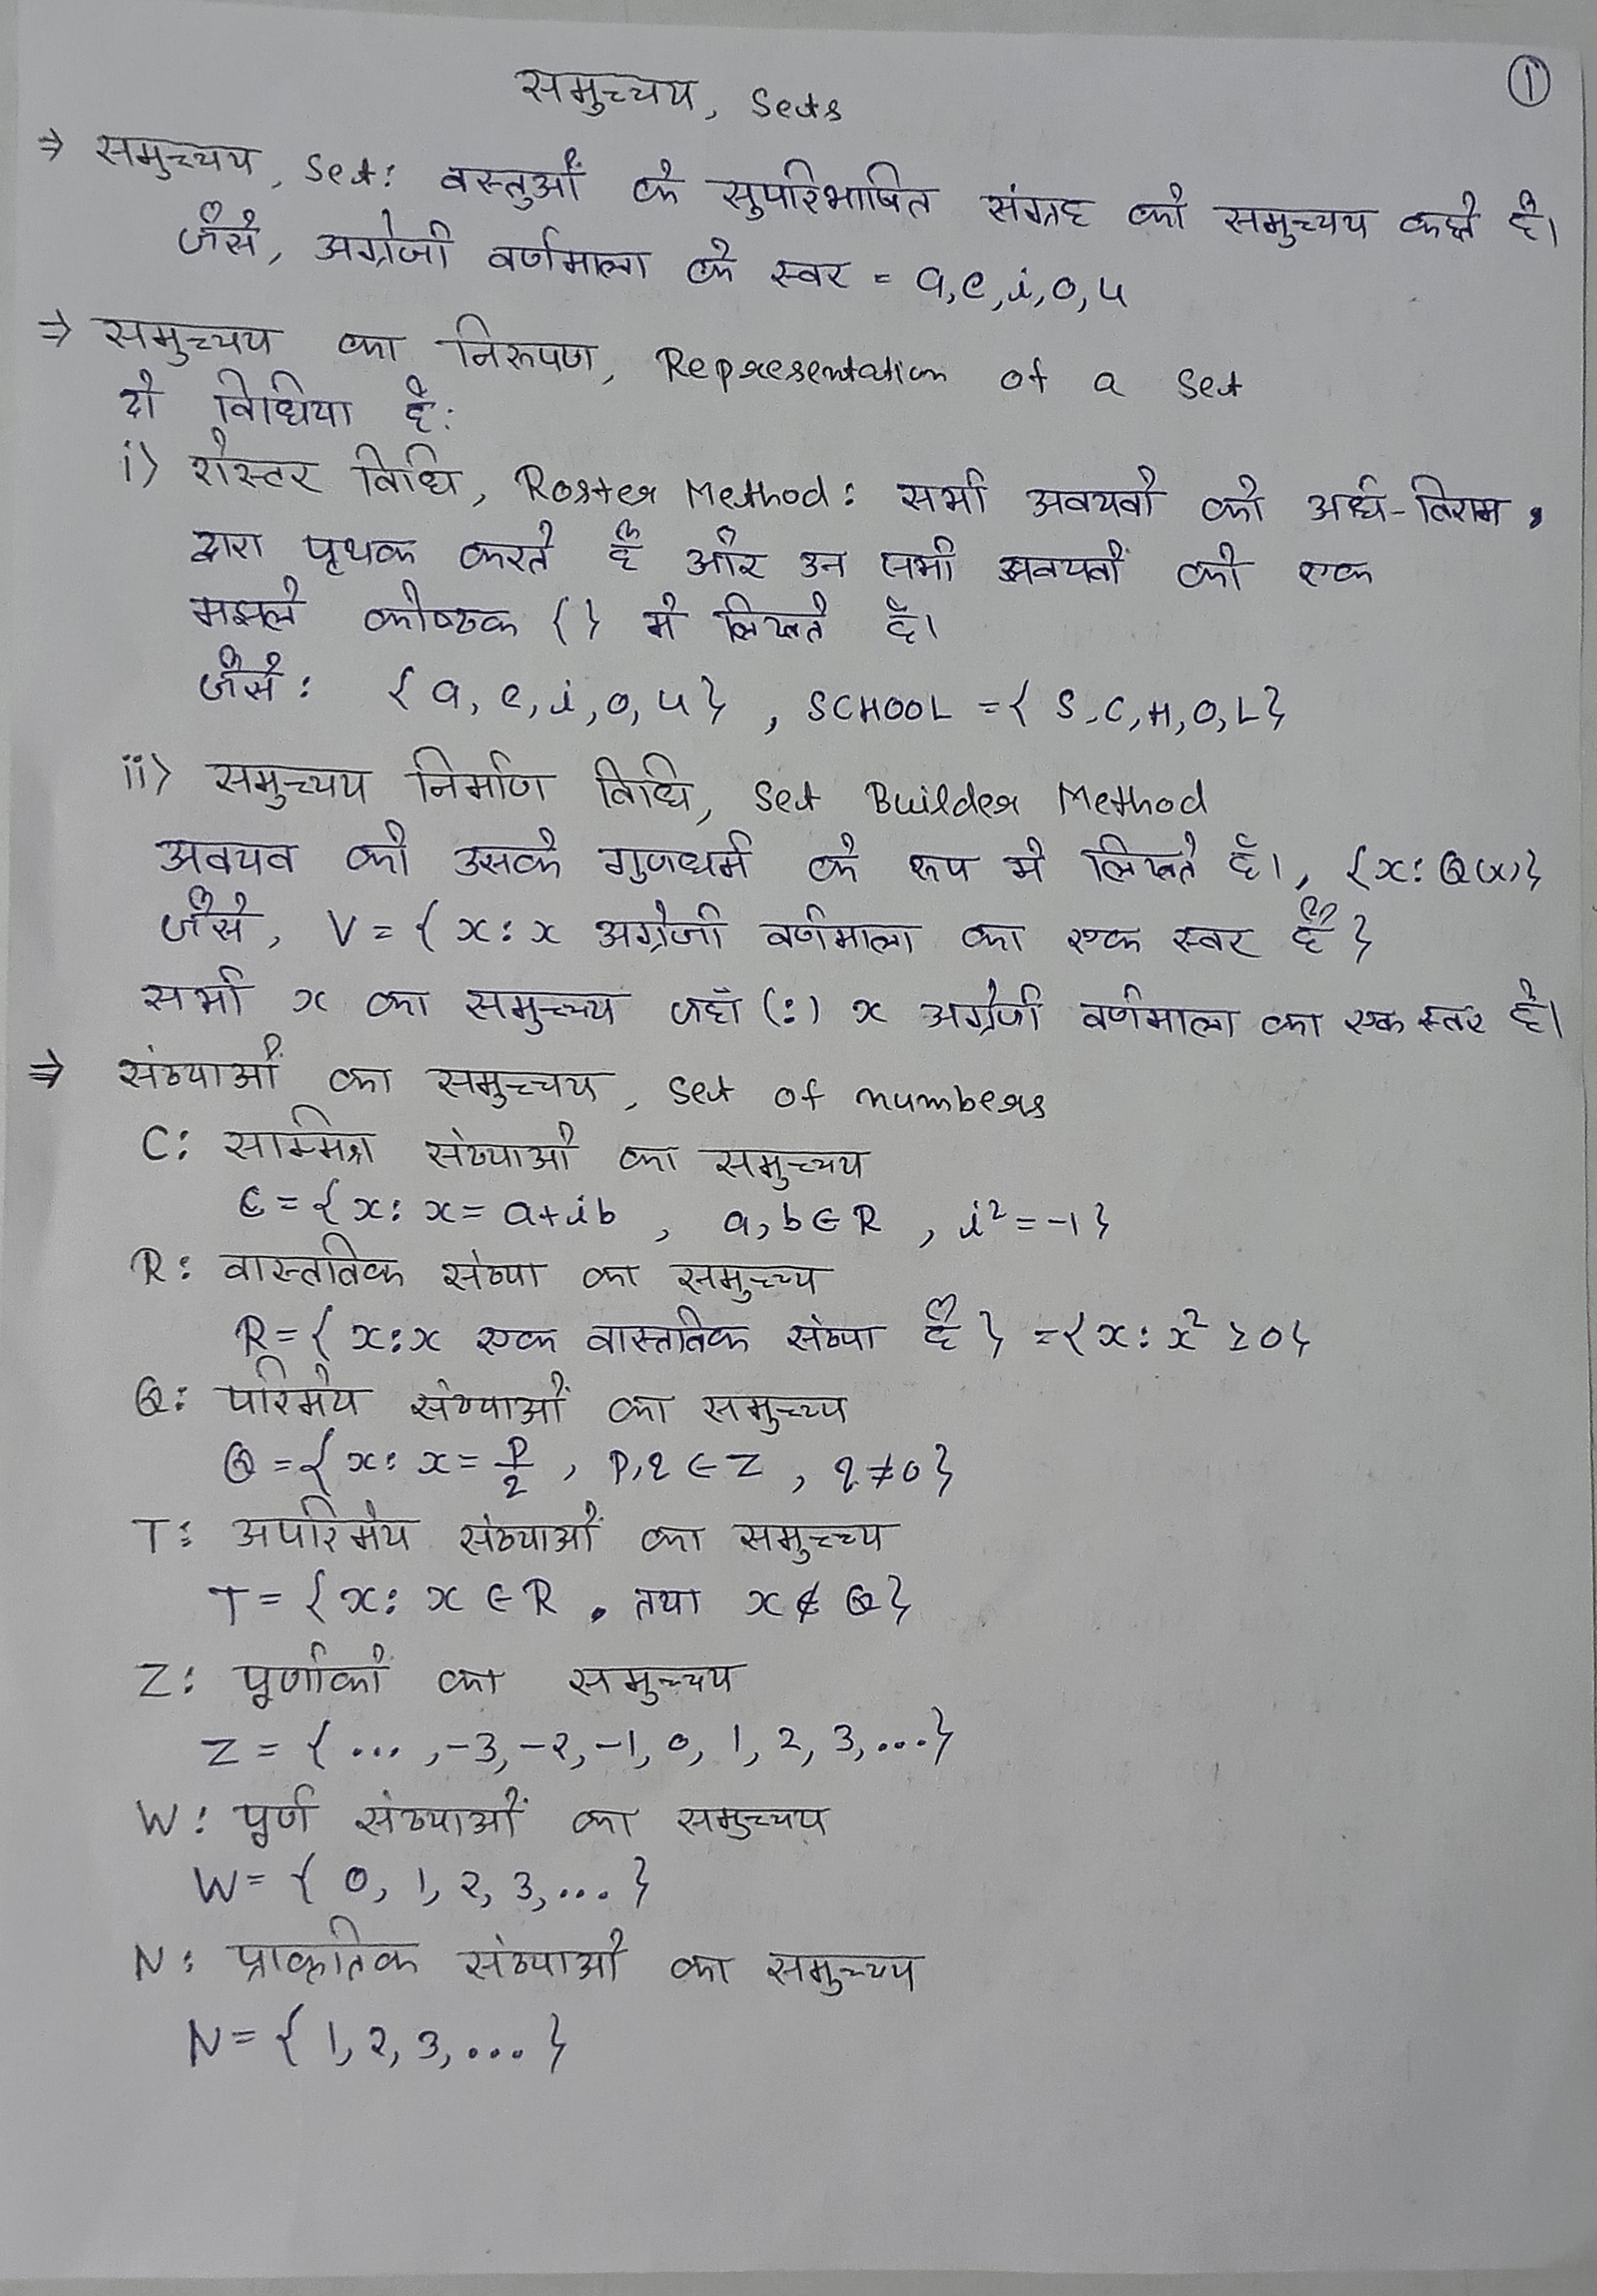 ①
समुच्चय, Sets
⇒ समुच्चय, Set: वस्तुओं के सुपरिभाषित संग्रह को समुच्चय कहते है।
जैसे, अग्रेजी वर्णमाला के स्वर = a, e, i, o, u
⇒ समुच्चय का निरुपण, Representation of a Set
दो विधिया है:
i) रोस्टर विधि, Roster Method: सभी अवयवो को अर्ध-विराम ,
द्वारा पृथक करते हैं और उन सभी अवयवों को एक
मझले कोष्ठक { } मे लिखते है।
जैसे: { a, e, i, o, u } , SCHOOL = { S, C, H, O, L }
ii) समुच्चय निर्माण विधि, Set Builder Method
अवयव को उसके गुणधर्म के रूप मे लिखते है।, {x: Q(x)}
जैसे, V = { x : x अग्रेजी वर्णमाला का एक स्वर हैं }
सभी x का समुच्च्य जहाँ (:) x अग्रेजी वर्णमाला का एक स्वर है।
⇒ संख्याओं का समुच्चय, Set of numbers
C: साम्मिश्र संख्याओ का समुच्चय
C = { x : x = a + ib , a, b ∈ R , i² = -1 }
R: वास्तविक संख्या का समुच्च्य
R = { x : x एक वास्तविक संख्या हैं } = { x : x² ≥ 0 }
Q: परिमेय संख्याओं का समुच्च्य
Q = { x : x = p/q , p, q ∈ Z , q ≠ 0 }
T: अपरिमेय संख्याओं का समुच्च्य
T = { x : x ∈ R , तथा x ∉ Q }
Z: पूर्णाको का समुच्चय
Z = { ... , -3, -2, -1, 0, 1, 2, 3, ... }
W: पूर्ण संख्याओं का समुच्चय
W = { 0, 1, 2, 3, ... }
N: प्राकृतिक संख्याओ का समुच्च्य
N = { 1, 2, 3, ... }